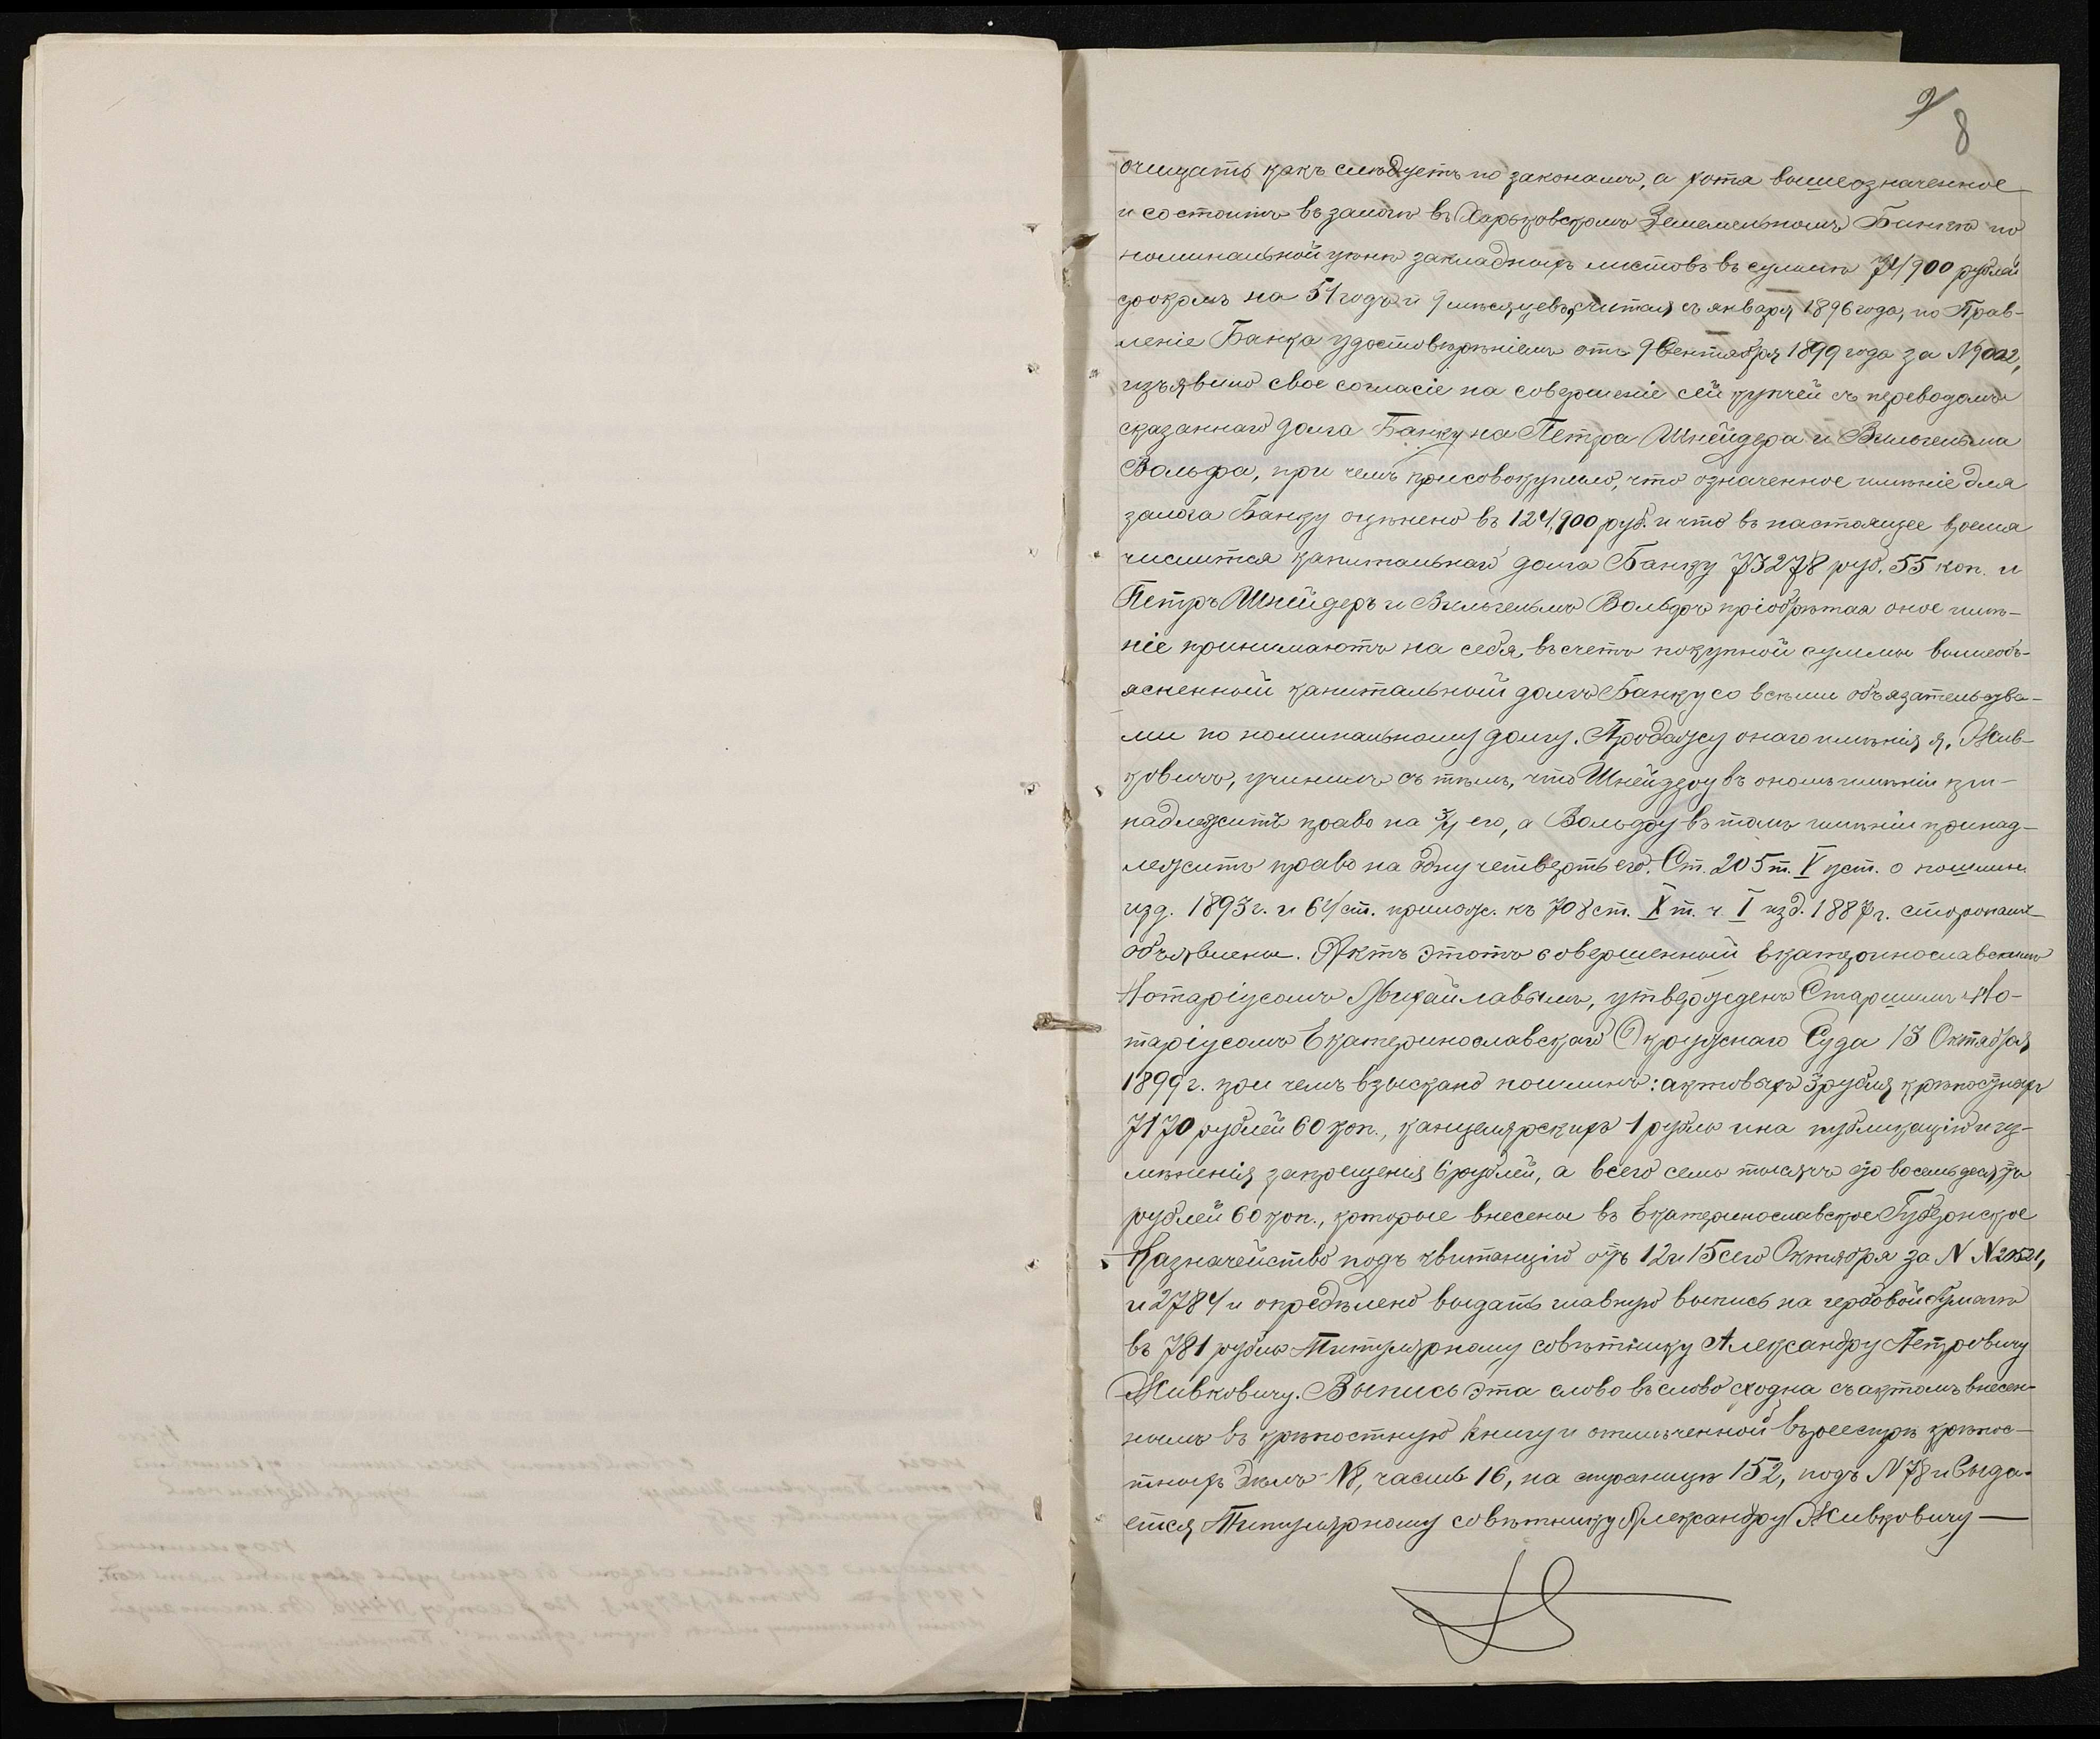 9
8
очищать какъ слѣдуетъ по законамъ, а хотя вышеозначенное
и состоитъ въ залогѣ въ Харьковскомъ Земельномъ Банкѣ по
номинальной цѣнѣ закладныхъ листовъ въ суммѣ 74900 рублей
срокомъ на 51 годъ и 9 мѣсяцевъ, считая съ января 1896 года, но Прав-
леніе Банка удостовѣреніемъ отъ 9 Сентября 1899 года за № 9022,
изъявило свое согласіе на совершеніе сей купчей съ переводомъ
сказаннаго долга Банку на Петра Шнейдера и Вильгельма
Вольфа, при чемъ присовокупило, что означенное имѣніе для
залога Банку оцѣнено въ 124,900 руб. и что въ настоящее время
числится капитальнаго долга Банку 73278 руб. 55 коп. и
Петръ Шнейдеръ и Вильгельмъ Вольфъ пріобрѣтая оное имѣ-
ніе принимаютъ на себя, въ счетъ покупной суммы вышеобъ-
ясненный капитальный долгъ Банку со всѣми обязательства-
ми по номинальному долгу. Продажу онаго имѣнія я, Жив-
ковичъ, учинилъ съ тѣмъ, что Шнейдеру въ ономъ имѣніи при-
надлежитъ право на 3/4 его, а Вольфу въ томъ имѣніи принад-
лежитъ право на одну четверть его. Ст. 205 т. V уст. о пошлин.
изд. 1893 г. и 64 ст. прилож. къ 708 ст. X т. ч. I изд. 1887 г. сторонамъ
объявлены. Актъ этотъ совершенный Екатеринославскимъ
Нотаріусомъ Михайловымъ, утвержденъ Старшимъ Но-
таріусомъ Екатеринославскаго Окружнаго Суда 15 Октября
1899 г. при чемъ взыскано пошлинъ: актовыхъ 3 рубля крѣпостныхъ
7170 рублей 60 коп., канцелярскихъ 1 рубль и на публикацію и
запрещенія 6 рублей, а всего семь тысячъ сто восемьдесятъ
рублей 60 коп., которые внесены въ Екатеринославское Губернское
Казначейство подъ квитанцію отъ 12 и 15 сего Октября за N N 20521,
и 2784 и опредѣлено выдать главную выпись на гербовой бумагѣ
въ 781 рубль Титулярному совѣтнику Александру Петровичу
Живковичу. Выпись эта слово въ слово сходна съ актомъ внесен-
нымъ въ крѣпостную книгу и отмѣченной въ реестрѣ крѣпос-
тныхъ дѣлъ N8, часть 16, на страницѣ 152, подъ N 78 и выда-
ется Титулярному совѣтнику Александру Живковичу —